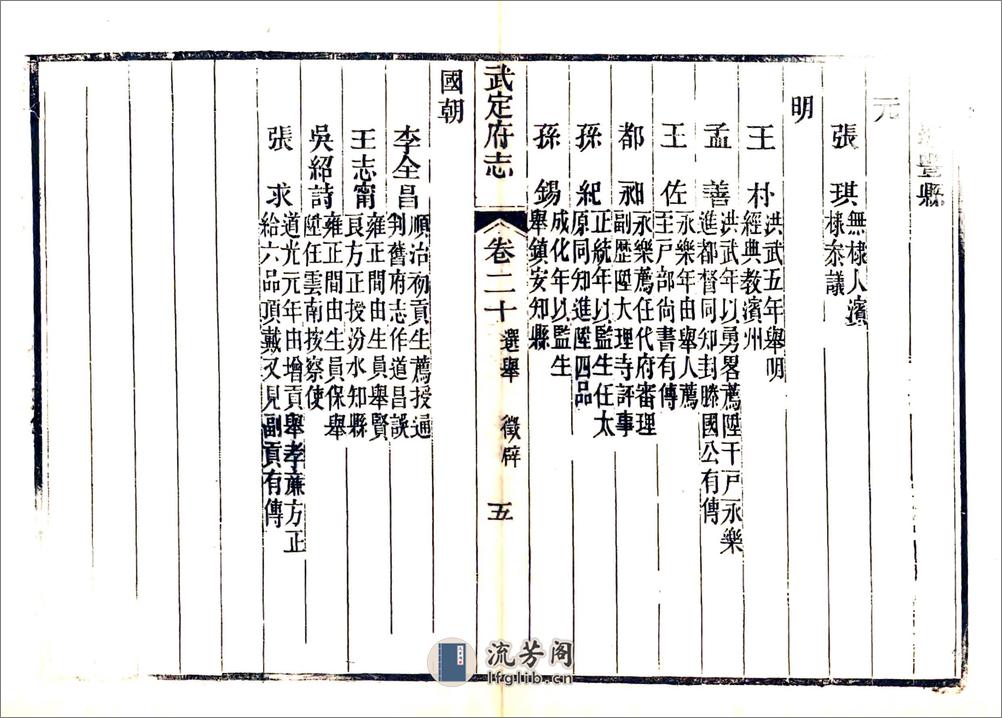 豐縣
元
張琪
無棣人濱
棣叅議
明
王朴
洪武五年舉明
經典教濱州
孟善
洪武年以勇畧薦陞千戶永樂
進都督同知封滕國公有傳
王佐
永樂年由舉人薦
至戶部尚書有傳
都昶
永樂薦任代府審理
副歷陞大理寺評事
孫紀
正統年以監生任太
原同知進陞四品
孫錫
成化年以監生
舉鎮安知縣
武定府志 卷二十 選舉 徵辟 五
國朝
李全昌
順治初貢生薦授通
判舊府志作道昌誤
王志甯
雍正間由生員舉賢
良方正授汾水知縣
吳紹詩
雍正間由生員保舉
陞任雲南按察使
張求
道光元年由增貢舉孝廉方正
給六品頂戴又見副貢有傳
流芳阁
lfglib.cn